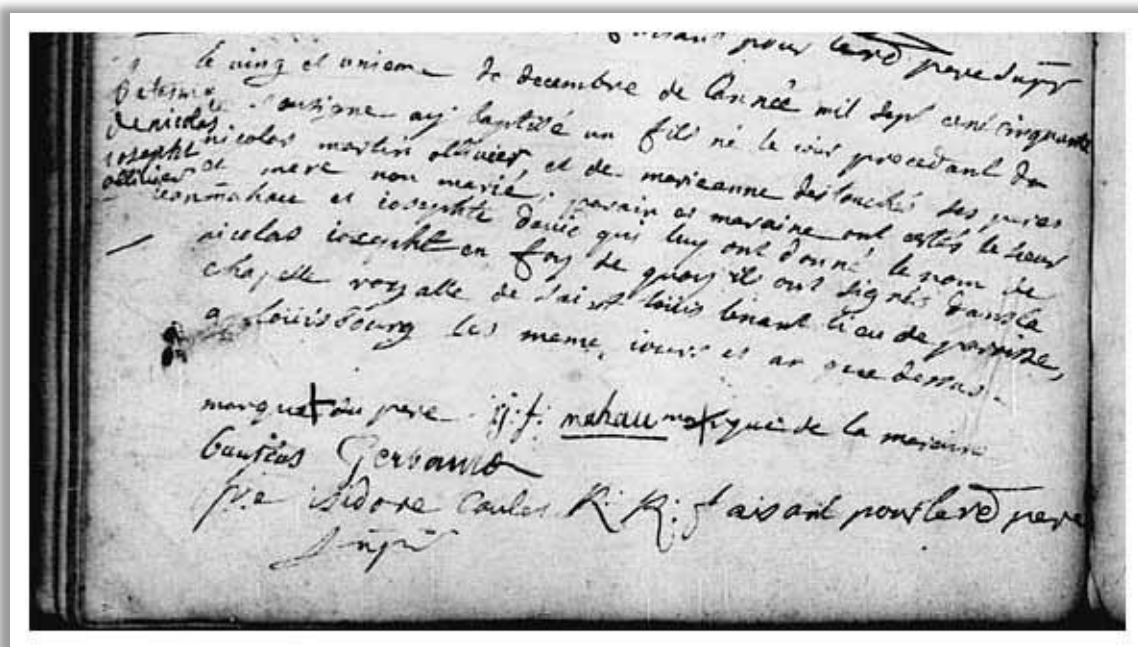 faisant pour le rd pere Supr
le ving et unieme de decembre de lannée mil sept cent cinquante
Batesme
je soussigne ay baptisé un fils né le iour procedant de
de nicolas
nicolas martin ollivier et de marieanne destouches ses peres
iosepht
et mere non marié, parain et maraine ont estés le sieur
ollivier
iean mahau et iosephte qui luy ont donné le nom de
nicolas iosepht en foy de quoy ils ont signés dans la
chapelle royalle de saint loüis tenant lieu de parroisse,
a loüisbourg les meme iours et an que dessus
marque + du pere j. f. mahau marque de la maraine
fr isidore caulet R. R. faisant pour le rd pere
Supr